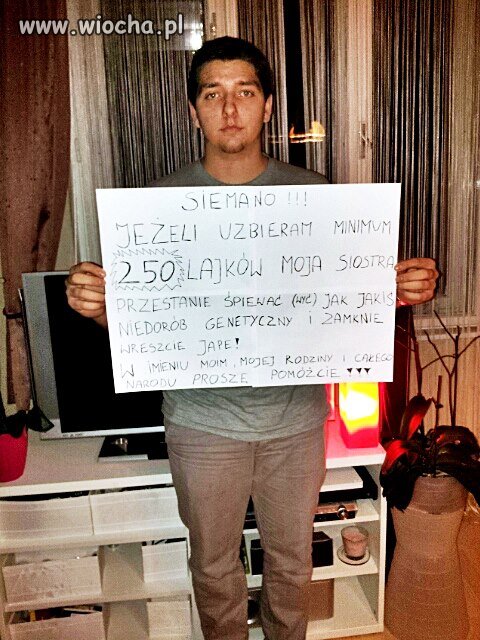 www.wiocha.pl
SIEMANO !!!
JEŻELI UZBIERAM MINIMUM
250 LAJKÓW MOJA SIOSTRA
PRZESTANIE ŚPIEWAĆ (WYĆ) JAK JAKIŚ
NIEDORÓB GENETYCZNY I ZAMKNIE
WRESZCIE JAPE!
W IMIENIU MOIM, MOJEJ RODZINY I CAŁEGO
NARODU PROSZĘ POMÓŻCIE !!!